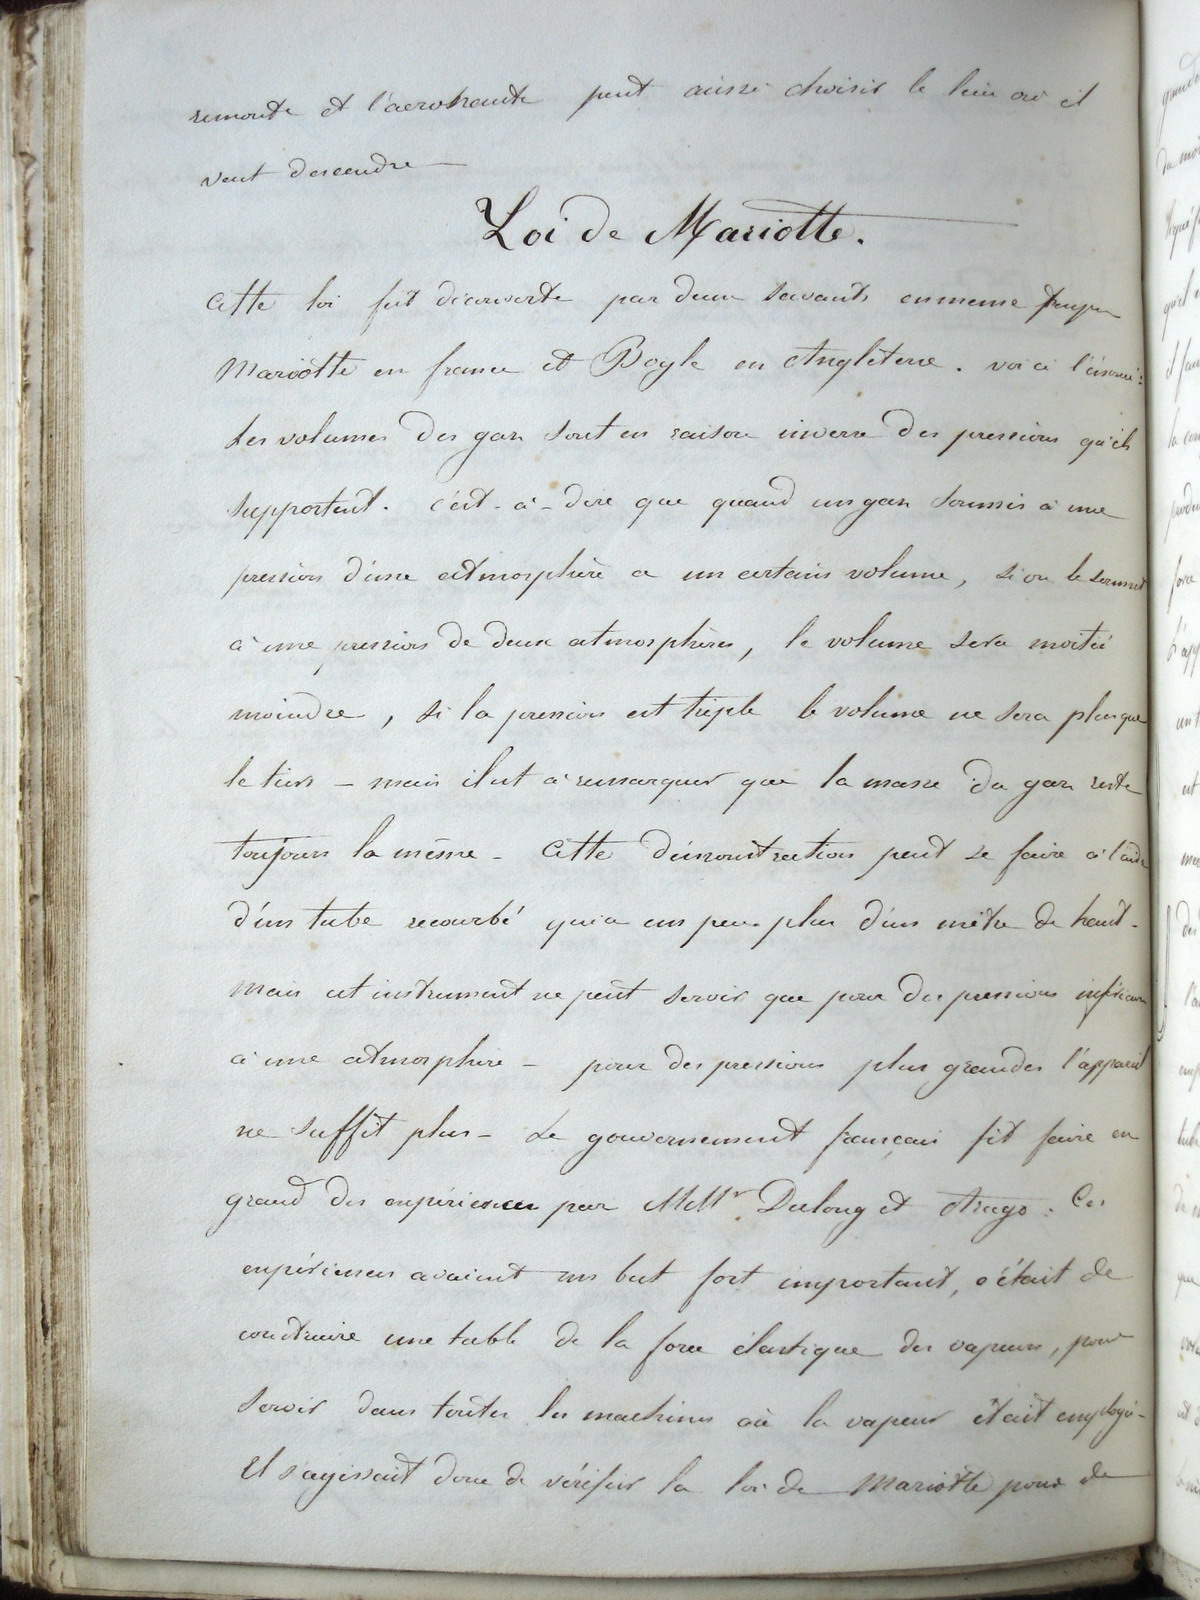 remonte et l'aeronaute peut aussi choisir le lieu où il
veut descendre —
Loi de Mariotte.
Cette loi fut découverte par deux savants en meme temps
Mariotte en france et Boyle en Angleterre. voici l'énoncé:
Les volumes des gaz sont en raison inverse des pressions qu'ils
supportent. c'est-à-dire que quand un gaz soumis à une
pression d'une atmosphère a un certain volume, si on le soumet
à une pression de deux atmosphères, le volume sera moitié
moindre, si la pression est triple le volume ne sera plus que
le tiers - mais il est à remarquer que la masse du gaz reste
toujours la même - Cette démonstration peut se faire à l'aide
d'un tube recourbé qui a un peu plus d'un mètre de haut -
Mais cet instrument ne peut servir que pour des pressions inférieures
à une atmosphère - pour des pressions plus grandes l'appareil
ne suffit plus - Le gouvernement français fit faire en
grand des expériences par MMrs Dulong et Arago : Ces
expériences avaient un but fort important, c'était de
construire une table de la force élastique des vapeurs, pour
servir dans toutes les machines où la vapeur était employée -
Il s'agissait donc de vérifier la loi de Mariotte pour de